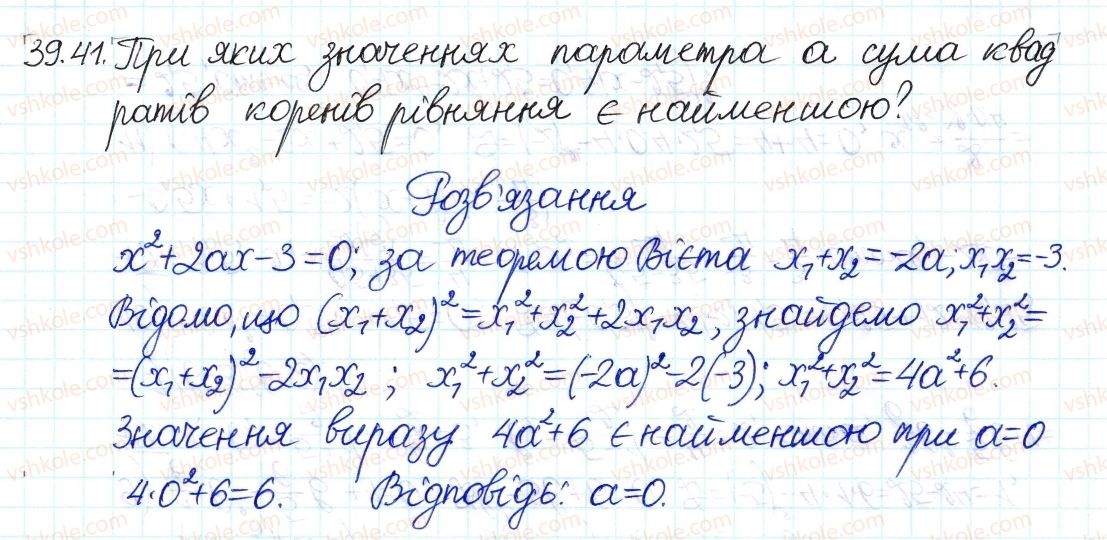 39.41. При яких значеннях параметра а сума квад
ратів коренів рівняння є найменшою?
Розв'язання
x²+2ax-3=0; за теоремою Вієта x₁+x₂=-2a; x₁x₂=-3.
Відомо, що (x₁+x₂)²=x₁²+x₂²+2x₁x₂, знайдемо x₁²+x₂²=
=(x₁+x₂)²-2x₁x₂; x₁²+x₂²=(-2a)²-2(-3); x₁²+x₂²=4a²+6.
Значення виразу 4a²+6 є найменшою при a=0
4·0²+6=6. Відповідь: a=0.